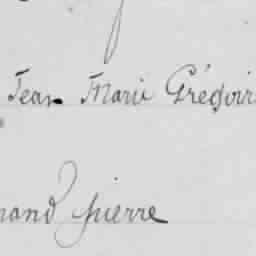 Jean Marie Grégoir
mand pierre